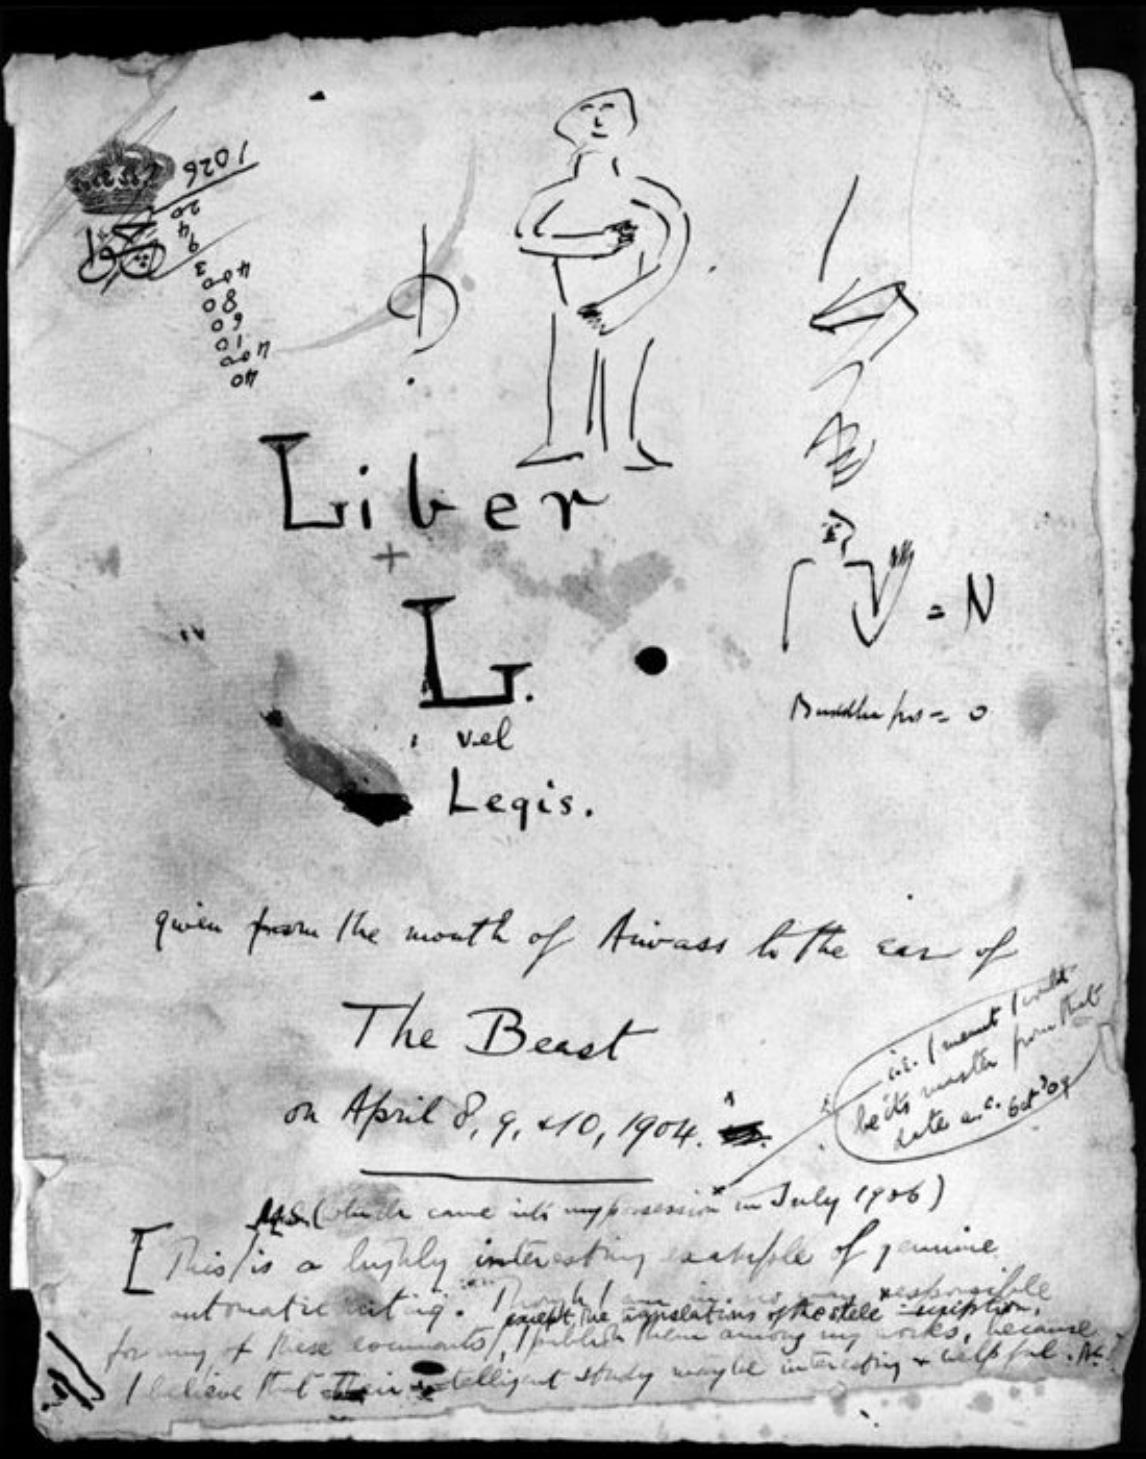 1026
20
4
9
3
400
80
60
10
400
40
Liber
+
L.
vel
Legis.
= N
Buddha = 0
given from the mouth of Aiwass to the ear of
The Beast
on April 8, 9, & 10, 1904.
i.e. I meant I would
be its master from that
date a.c. Oct '09
MS. (which came into my possession in July 1906)
[This is a highly interesting example of genuine
automatic writing. Though I am in no way responsible
except the translations of the stele inscription,
for any of these documents, I publish them among my works, because
I believe that their intelligent study may be interesting & helpful. AC